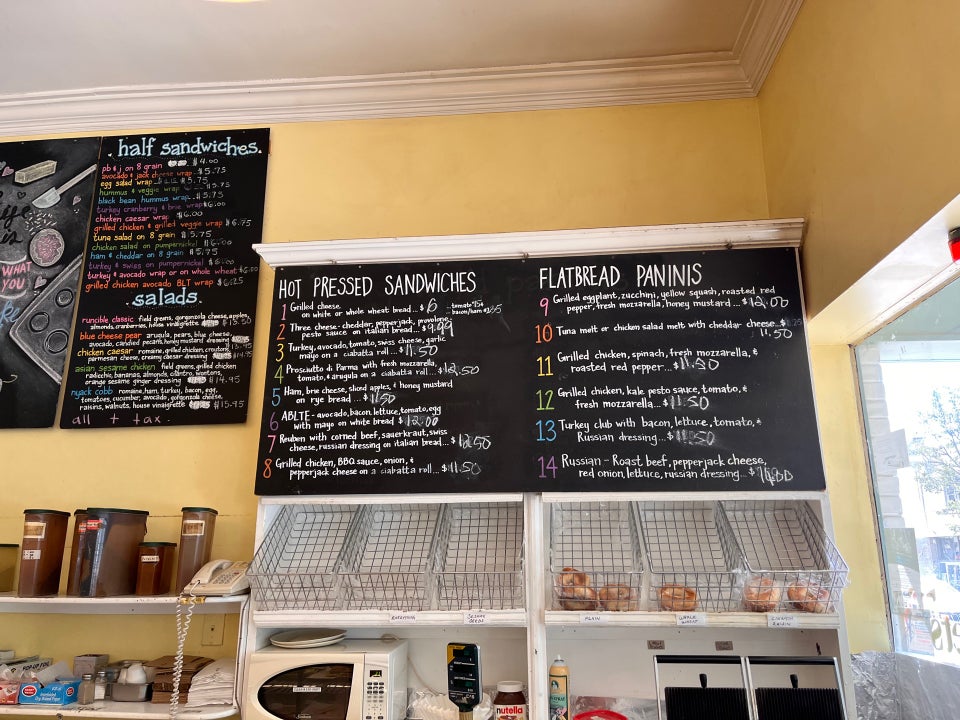 WHAT
YOU
half sandwiches.
pb & j on 8 grain $4.00
avocado & jack cheese wrap $5.75
egg salad wrap $5.75
hummus & veggie wrap $5.75
black bean hummus wrap $5.75
turkey cranberry & brie wrap $6.00
chicken caesar wrap $6.00
grilled chicken & grilled veggie wrap $6.75
tuna salad on 8 grain $5.75
chicken salad on pumpernickel $6.00
ham & cheddar on 8 grain $5.75
turkey & swiss on pumpernickel $6.00
turkey & avocado wrap or on whole wheat $6.00
grilled chicken avocado BLT wrap $6.25
salads.
runcible classic field greens, gorgonzola cheese, apples,
almonds, cranberries, house vinaigrette
blue cheese pear arugula, pears, blue cheese,
avocado, candied pecans, honey mustard dressing
chicken caesar romaine, grilled chicken, croutons,
parmesan cheese, creamy caesar dressing
asian sesame chicken field greens, grilled chicken
radicchio, bananas, almonds, cilantro, wontons,
orange sesame ginger dressing $14.95
nyack cobb romaine, ham, turkey, bacon, egg,
tomatoes, cucumber, avocado, gorgonzola cheese,
raisins, walnuts, house vinaigrette $15.95
all + tax
HOT PRESSED SANDWICHES
1 Grilled cheese
on white or whole wheat bread... $6 tomato
bacon/ham
2 Three cheese-cheddar, pepperjack, provolone
pesto sauce on italian bread... $9.99
3 Turkey, avocado, tomato, swiss cheese, garlic
mayo on a ciabatta roll... $11.50
4 Prosciutto di Parma with fresh mozzarella,
tomato, & arugula on a ciabatta roll... $12.50
5 Ham, brie cheese, sliced apples, & honey mustard
on rye bread... $11.50
6 ABLTE - avocado, bacon, lettuce, tomato, egg
with mayo on white bread... $12.00
7 Reuben with corned beef, sauerkraut, swiss
cheese, russian dressing on italian bread... $12.50
8 Grilled chicken, BBQ sauce, onion, &
pepperjack cheese on a ciabatta roll... $11.50
FLATBREAD PANINIS
9 Grilled eggplant, zucchini, yellow squash, roasted red
pepper, fresh mozzarella, honey mustard... $12.00
10 Tuna melt or chicken salad melt with cheddar cheese...$
11.50
11 Grilled chicken, spinach, fresh mozzarella, &
roasted red pepper... $11.50
12 Grilled chicken, kale pesto sauce, tomato, &
fresh mozzarella... $11.50
13 Turkey club with bacon, lettuce, tomato, &
Russian dressing... $11.50
14 Russian - Roast beef, pepperjack cheese,
red onion, lettuce, russian dressing... $
EVERYTHING
SESAME
SEEDS
PLAIN
WHOLE
WHEAT
CINNAMON
RAISIN
nutella